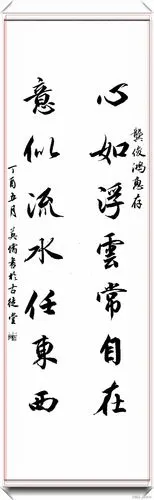 龔俊鴻惠存
心如浮雲常自在
意似流水任東西
丁酉五月 儒書於古堂